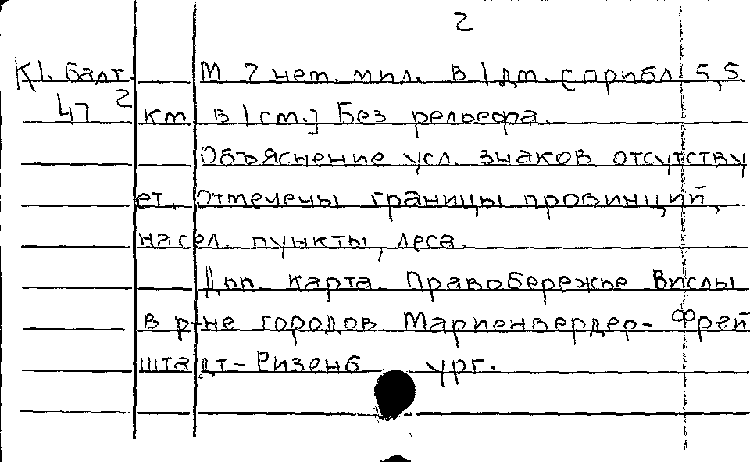 2
К1. Балт. М 2 нем. мил. в 1 дм. [прибл. 5,5
47 2 км. в 1 см.] Без рельефа.
Объяснение усл. знаков отсутству
ет. Отмечены границы провинций,
насел. пункты, леса.
Доп. карта. Правобережье Вислы
в р-не городов Мариенвердер-Фрей
штадт-Ризенб ург.